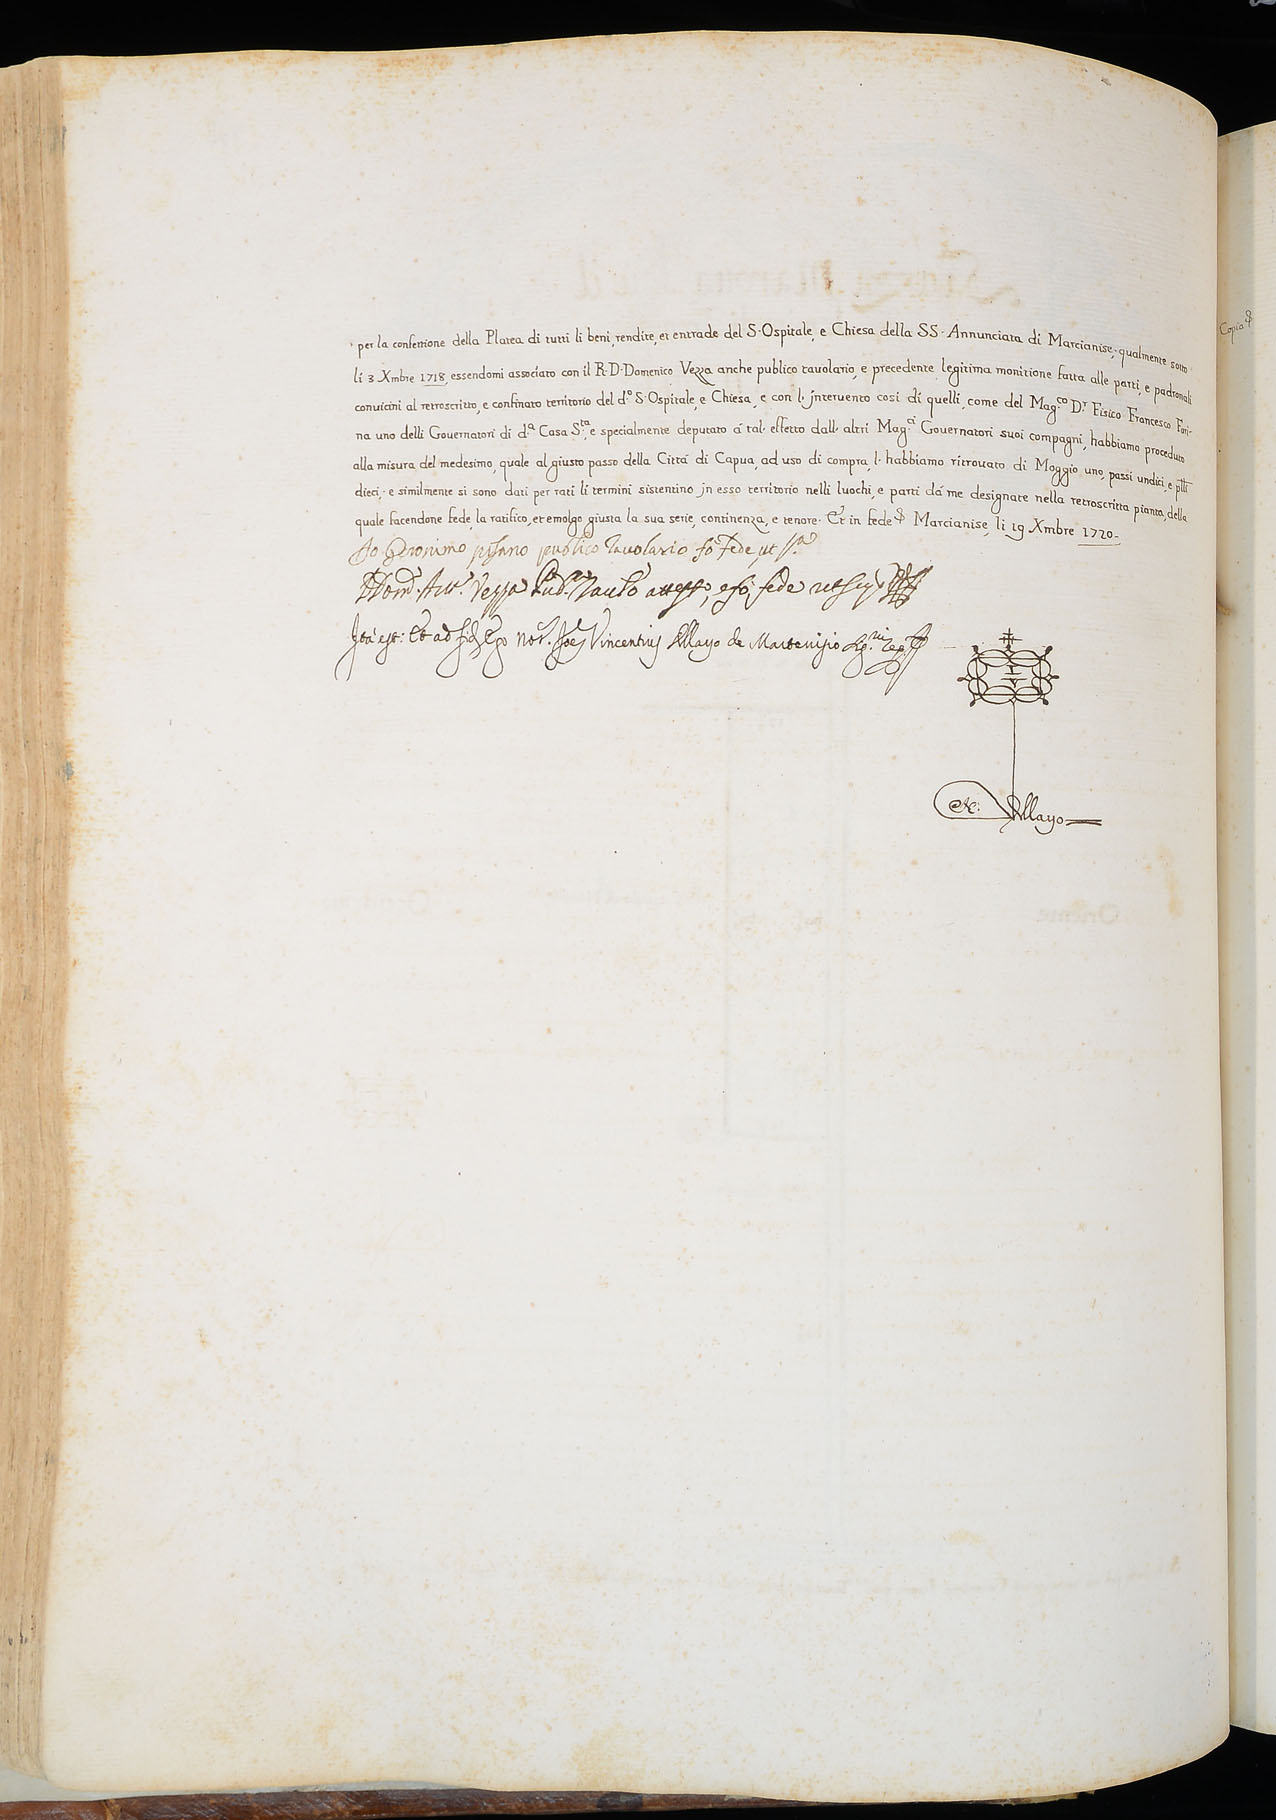 per la confettione della Platea di tutti li beni, rendite, et entrade del S. Ospitale, e Chiesa della SS. Annunciata di Marcianise, qualmente sotto
li 3 Xmbre 1718, essendomi associato con il R. D. Domenico Vezza anche publico tavolario, e precedente legitima monitione fatta alle parti, e padronali
convicini al retroscritto, e confinato territorio del d.º S. Ospitale, e Chiesa, e con l. jntervento cosi di quelli, come del Mag.co D.r Fisico Francesco Fori-
na uno delli Governatori di d.a Casa S.ta, e specialmente deputato á tal. effetto dall. altri Mag.ci Governatori suoi compagni, habbiamo proceduto
alla misura del medesimo, quale al giusto passo della Cittá di Capua, ad uso di compra, l. habbiamo ritrovato di Moggio uno, passi undici, e p̃tti
dieci, e similmente si sono dati per rati li termini sistentino jn esso territorio nelli luochi, e parti dá me designate nella retroscritta pianta, della
quale facendone fede, la ratifico, et emolgo giusta la sua serie, continenza, e tenore. Et in fede Marcianise, li 19 Xmbre 1720.
Io Geronimo pisano publico Tavolario fo fede, ut s.a
Vezza Pub.co fede
Ita est: Et ad fid. Ego Not. Vincentius Mayo de
N. Mayo
Copia
Oriente